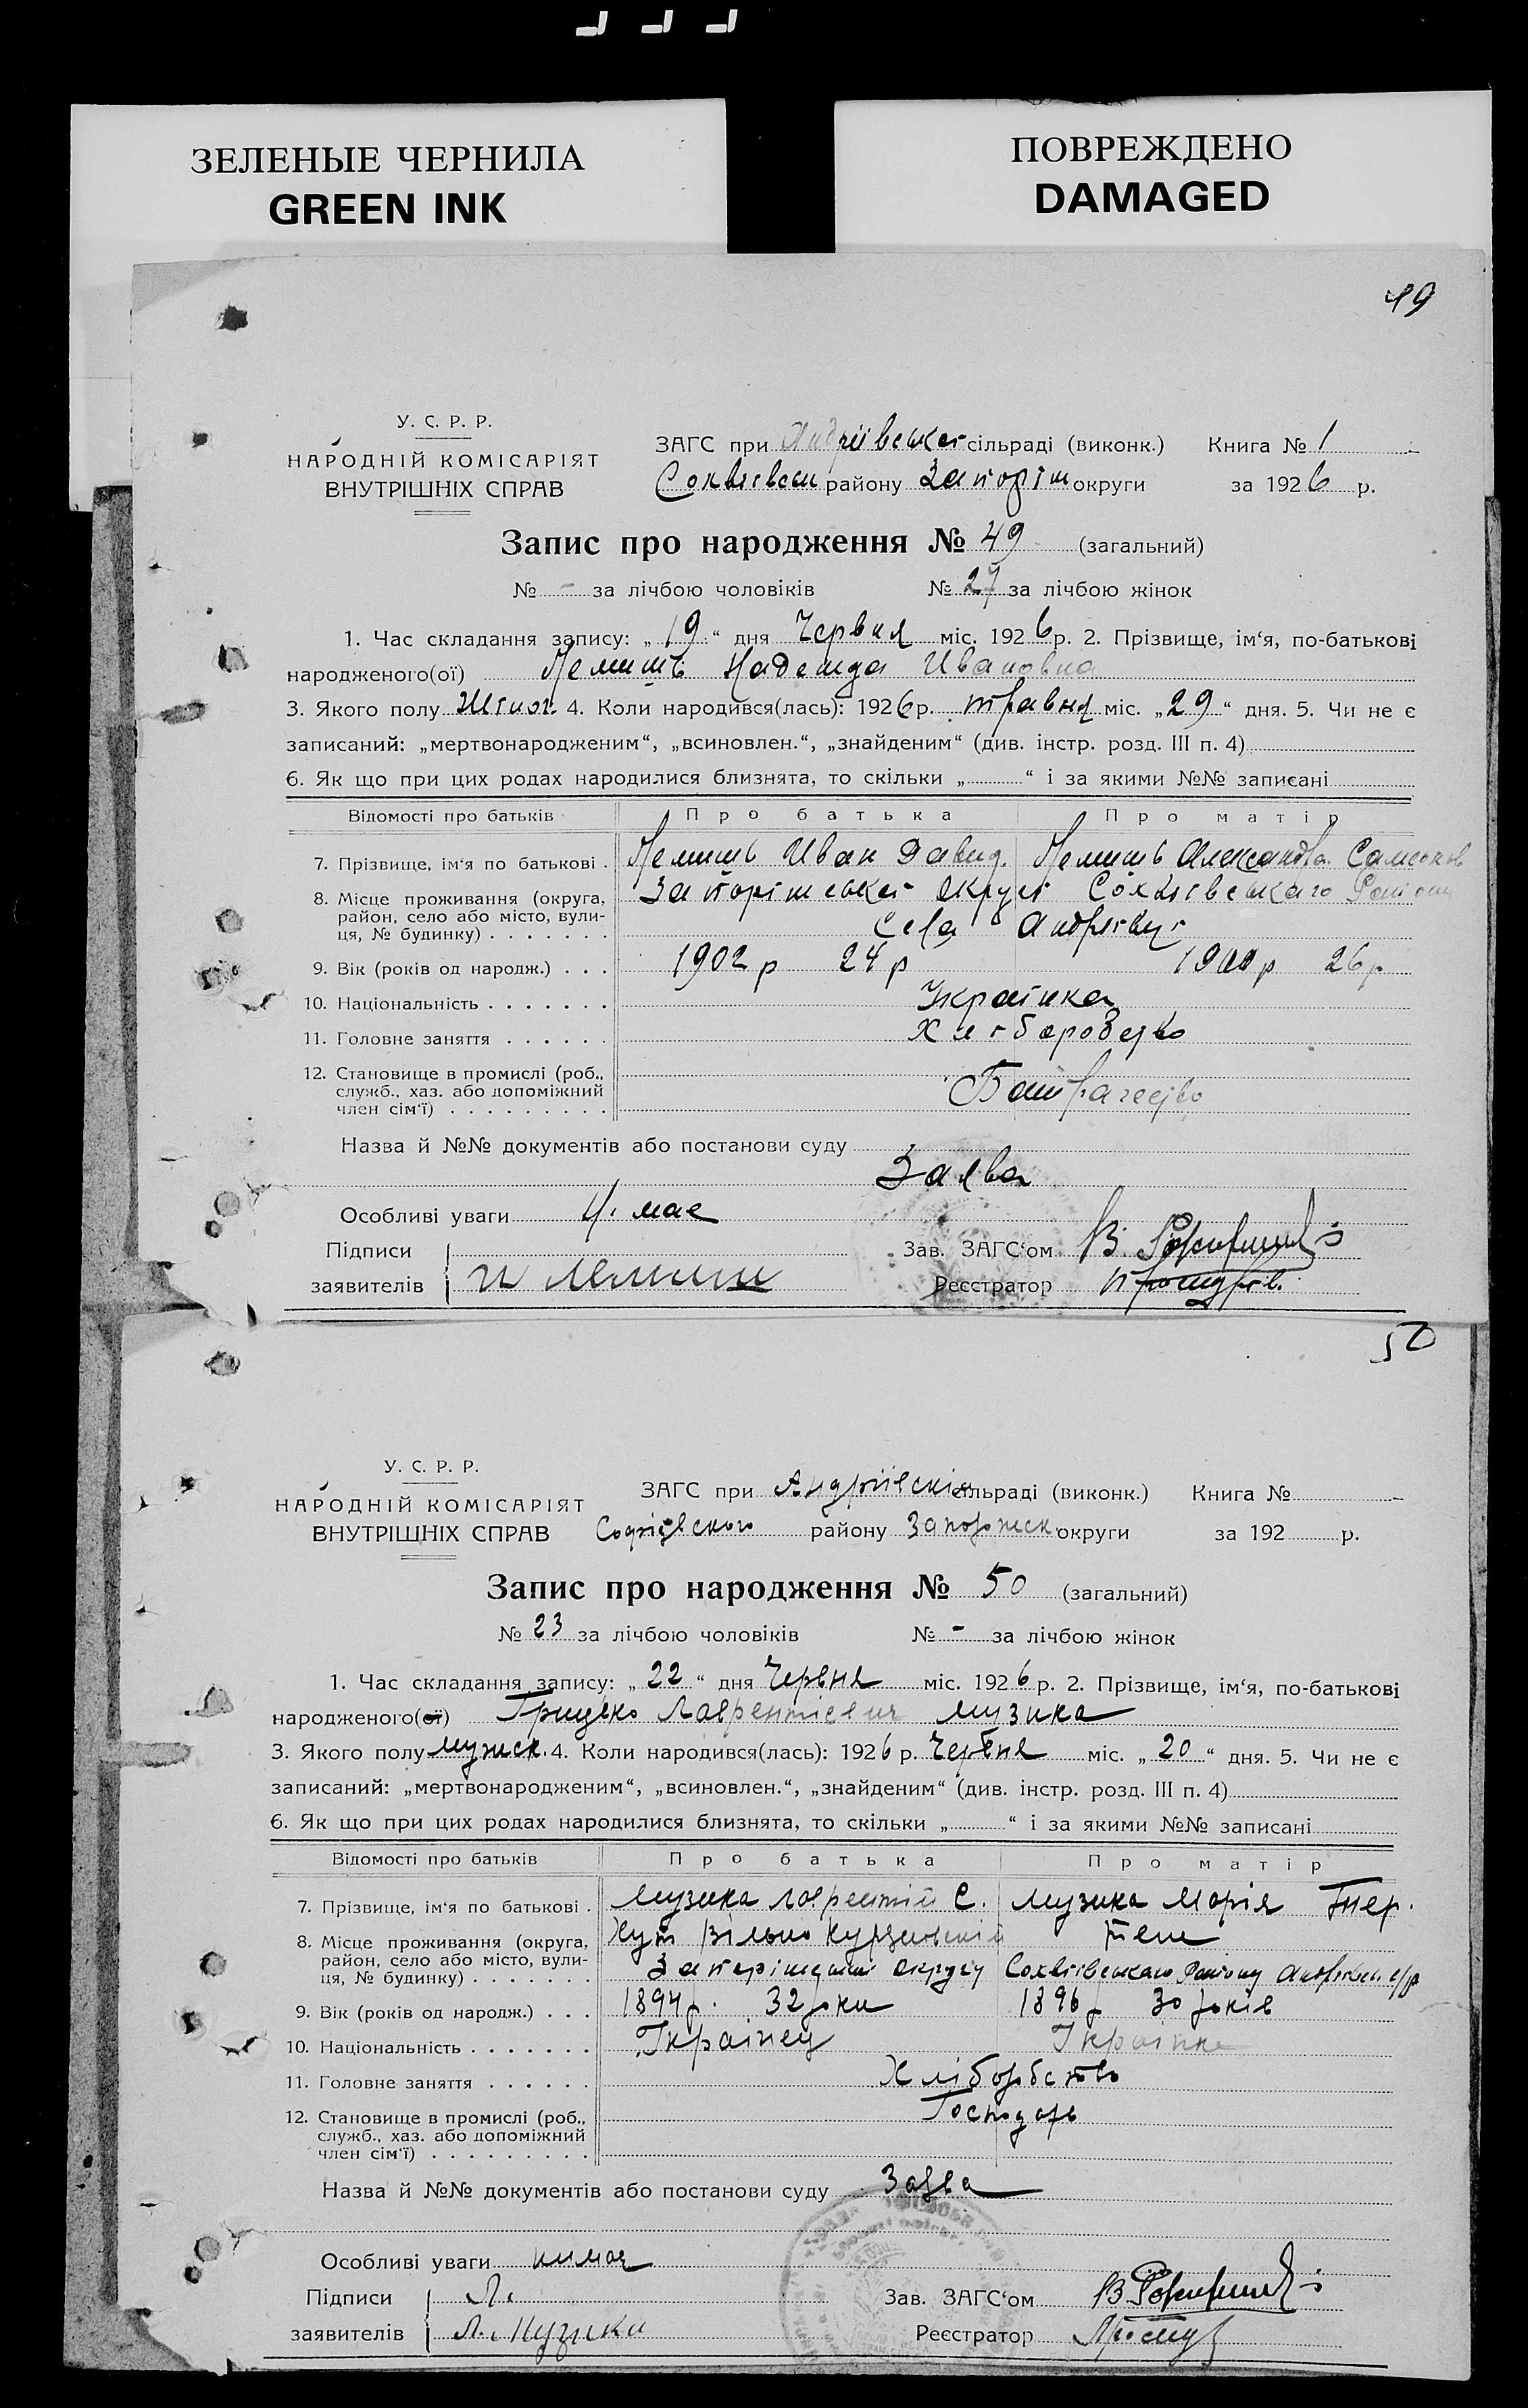 ЗЕЛЕНЫЕ ЧЕРНИЛА
GREEN INK
ПОВРЕЖДЕНО
DAMAGED
49
У. С. Р. Р.
НАРОДНІЙ КОМІСАРІЯТ
ВНУТРІШНІХ СПРАВ
ЗАГС при Андріївській сільраді (виконк.) Книга № 1
району Запоріж округи за 1926 р.
Запис про народження № 49 (загальний)
№ - за лічбою чоловіків № 27 за лічбою жінок
1. Час складання запису: „19“ дня Червня міс. 1926 р. 2. Прізвище, ім‘я, по-батькові
народженого(ої) Лемишь Надежда Ивановна
3. Якого полу Жіноч. 4. Коли народився(лась): 1926 р. травня міс. „29“ дня. 5. Чи не є
записаний: „мертвонародженим“, „всиновлен.“, „знайденим“ (див. інстр. розд. III п. 4)
6. Як що при цих родах народилися близнята, то скільки „ “ і за якими №№ записані
Відомості про батьків Про батька Про матір
7. Прізвище, ім‘я по батькові . Лемишь Иван Давид. Лемишь Александра Самсонов
8. Місце проживання (округа,
район, село або місто, вули-
ця, № будинку) . . . . . . .
Запоріжської округи
Села
9. Вік (років од народж.) . . . 1902 р 24 р 1900 р 26 р
10. Національність . . . . . . . Українка
11. Головне заняття . . . . . .
12. Становище в промислі (роб.,
служб., хаз. або допоміжний
член сім‘ї) . . . . . . . . .
Назва й №№ документів або постанови суду
Заява
Особливі уваги Н. мае
Підписи
заявителів И Лемиш
Зав. ЗАГС‘ом В.
Реєстратор
50
У. С. Р. Р.
НАРОДНІЙ КОМІСАРІЯТ
ВНУТРІШНІХ СПРАВ
ЗАГС при сільраді (виконк.) Книга №
Софіевского району Запорожск. округи за 192 р.
Запис про народження № 50 (загальний)
№ 23 за лічбою чоловіків № - за лічбою жінок
1. Час складання запису: „22“ дня Червня міс. 1926 р. 2. Прізвище, ім‘я, по-батькові
народженого(ої) Грицько Лаврентієвич Музика
3. Якого полу мужск. 4. Коли народився(лась): 1926 р. Червня міс. „20“ дня. 5. Чи не є
записаний: „мертвонародженим“, „всиновлен.“, „знайденим“ (див. інстр. розд. III п. 4)
6. Як що при цих родах народилися близнята, то скільки „ “ і за якими №№ записані
Відомості про батьків Про батька Про матір
7. Прізвище, ім‘я по батькові . Музика Лаврентій С. Музика Марія
8. Місце проживання (округа,
район, село або місто, вули-
ця, № будинку) . . . . . . .
Хут Вільно
округу
9. Вік (років од народж.) . . . 1894 р. 32 роки 1896 р 30 років
10. Національність . . . . . . . Українец Українка
11. Головне заняття . . . . . . Хліборобство
12. Становище в промислі (роб.,
служб., хаз. або допоміжний
член сім‘ї) . . . . . . . . .
Господарь
Назва й №№ документів або постанови суду Заява
Особливі уваги нимае
Підписи Л.
заявителів Л. Музика
Зав. ЗАГС‘ом В
Реєстратор